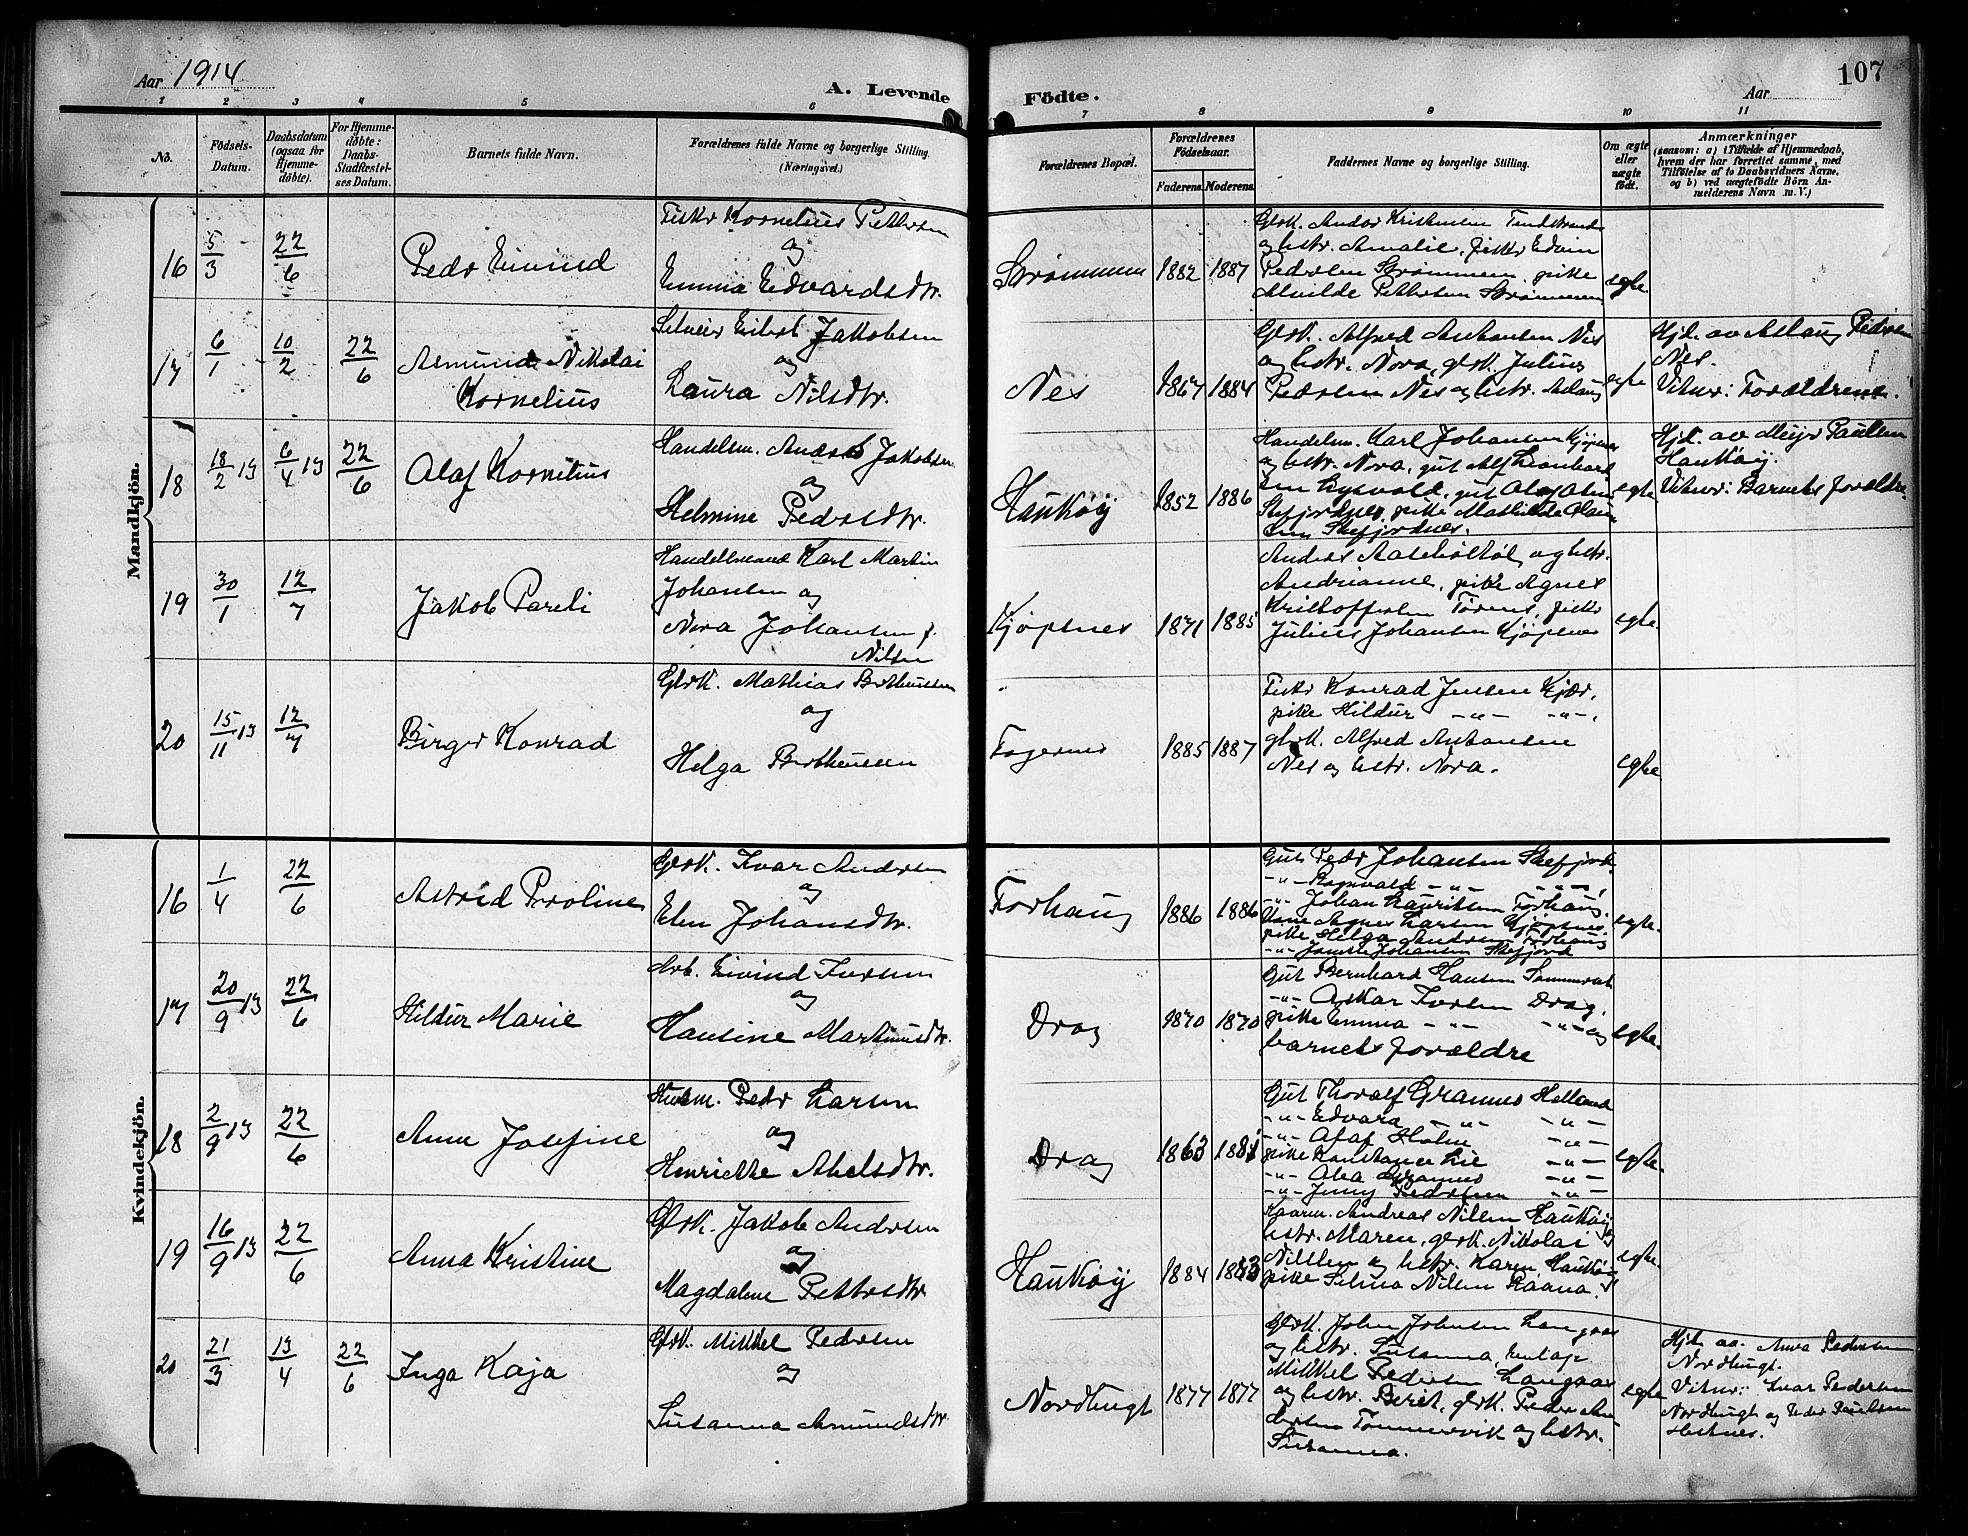 Aar 1914
A. Levende Födte.
Aar
107
1 2 3 4 5 6 7 8 9 10 11
No.
Födsels-Datum.
Daabsdatum (ogsaa for Hjemme-döbte).
For Hjemme-döbte: Daabs-Stadfæstel-ses Datum.
Barnets fulde Navn.
Forældrenes fulde Navne og borgerlige Stilling. (Næringsvei.)
Forældrenes Bopæl.
Forældrenes Födselsaar.
Faderens. Moderens.
Faddernes Navne og borgerlige Stilling.
Om ægte eller uægte födt.
Anmærkninger
(saasom: a) i Tilfælde af Hjemmedaab, hvem der har forrettet samme, med Tilföielse af to Daabsvidners Navne, og b) ved uægtefödte Börn An-melderens Navn m. V.)
Mandkjön.
16 5/3 22/6 Peder Eivind
Fisker Kornelius Pettersen
og
Emma Edvardsdtr.
Strømmen 1882 1887
Gbrk. Andor Kristensen
og hstr. Amalie, fisker Edvin
Pedersen Strømmen, pike
Alvilde Pettersen Strømmen
egte.
17 6/1 10/2 22/6 Asmund Nikolai
Kornelius
Eilert Jakobsen
og
Laura Nilsdtr.
Nes 1867 1884
Gbrk. Alfred Antonsen Nes
og hstr. Nora, gbrk. Julius
Pedersen Nes og hstr. Aslaug
egte
Hjd. av Aslaug Pedersen
Nes.
Vitner: Forældrene.
18 18/2 13 6/4 13 22/6 Olaf Kornelius
Handelsm. Anders Jakobsen
og
Helmine Pedersdtr.
Haukøy 1852 1886
Handelsm. Karl Johansen Kjøpsnes
og hstr. Nora, gut Alf Leonhard
sen Lysvold, gut Olaf Olsen
Skefjordnes, pike Mathilde
Skefjordnes.
egte
Hjd. av Meyer Paulsen
Haukøy.
Vitner: Barnets forældre.
19 30/1 12/7 Jakob Pareli
Handelsmand Karl Martin
Johansen og
Nora Johansen f.
Nilsen
Kjøpsnes 1871 1885
Anders og hstr.
Andrianne, pike Agnes
Kristoffersen Tørnes, fisker
Julius Johansen Kjøpsnes
egte.
20 15/11 13 12/7 Birger Konrad
Gbrk. Mathias Bertheussen
og
Helga Bertheussen
Fagernes 1885 1887
Fisker Konrad Jensen Kjær,
pike Hildur -"- -"-,
gbrk. Alfred Antonsen
Nes og hstr. Nora.
egte
Kvindekjön.
16 1/4 22/6 Astrid Proline
Gbrk. Ivar Andersen
og
Elen Johansdtr.
Forhaug 1886 1886
Gut Peder Johansen Skefjord.
-"- Ragnvald -"- -"-,
-"- Johan Lauritsen Forhaug.
Kone Agnes Larsen Kjøpsnes.
pike Helga Andersen Forhaug
-"- Johansen Skefjord
egte.
17 20/9 13 22/6 Hildur Marie
Arb. Eivind Iversen
og
Hansine Martinusdtr.
Drag 1870 1870
Gut Bernhard Hansen
-"- Oskar Iversen Drag,
pike Emma -"- -"- og
barnets forældre
egte.
18 2/9 13 22/6 Anne Josefine
Husm. Peder Larsen
og
Henriette Abelsdtr.
Drag 1863 1881
Gut Thoralf Grannes Helland
-"- Edvard -"- -"-
-"- Olaf Holm -"-
pike Konstance Lie -"-
-"- Olea Grannes -"-
-"- Jenny Pedersen -"-
egte.
19 16/9 13 22/6 Anna Kristine
Gbrk. Jakob Andersen
og
Magdalene Pettersdtr.
Haukøy 1884 1883
Kaarm. Andreas Nilsen Haukøy
hstr. Maren, gbrk. Nikolai
Nilsen og hstr. Karen Haukøy
pike Selma Nilsen Raana.
egte.
20 21/3 13/4 22/6 Inga Kaja
Gbrk. Mikkel Pedersen
og
Susanna Amundsdtr.
Nordbugt 1877 1877
Gbrk. John Johnsen Langaas
og hstr. Susanna,
Mikkel Pedersen Langaas
og hstr. Beret, gbrk. Peder An
dersen Tømmervik og hstr.
Susanna.
egte
Hjd. av Anna Pedersen
Nordbugt.
Vitner: Ivar Pedersen
Nordbugt og Peder Paulsen
Hestnes.